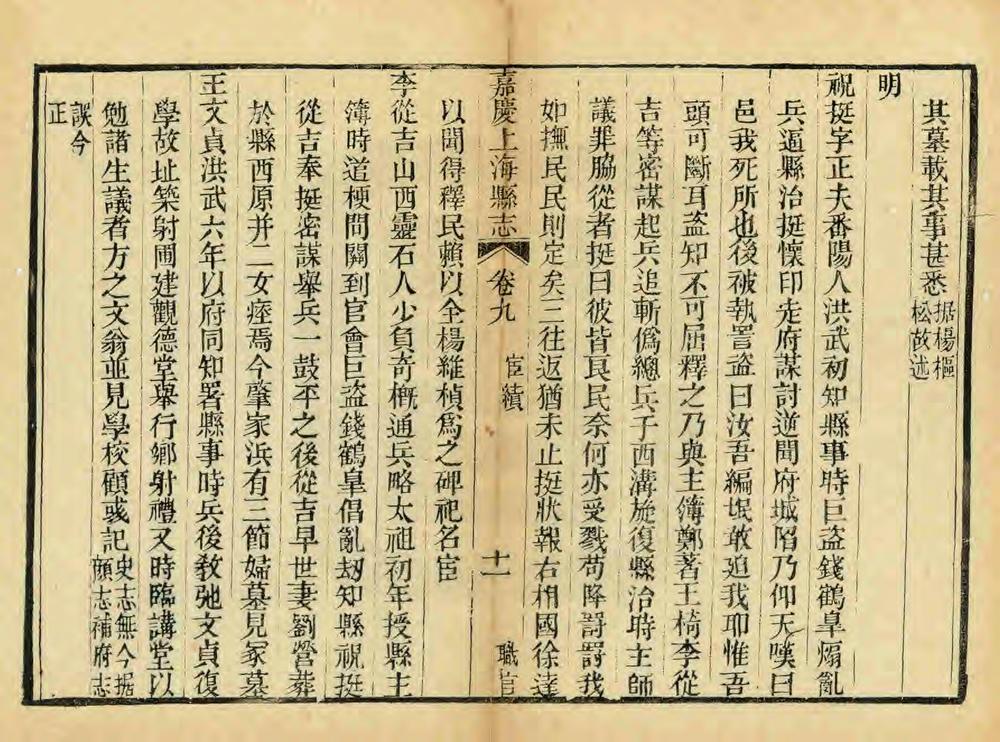 其墓載其事甚悉据楊樞
松故述
明
祝挺字正夫番陽人洪武初知縣事時巨盜錢鶴臯煽亂
兵逼縣治挺懷印走府謀討逆聞府城陷乃仰天嘆曰
邑我死所也後被執詈盜曰汝吾編氓敢迫我耶惟吾
頭可斷耳盜知不可屈釋之乃與主簿鄭著王椅李從
吉等密謀起兵追斬僞總兵于西溝旋復縣治時主師
議罪脇從者挺曰彼皆良民奈何亦受戮苟降罸罸我
如撫民民則定矣三往返猶未止挺狀報右相國徐達
嘉慶上海縣志 卷九 宦績 十一 職官
以聞得釋民賴以全楊維楨爲之碑祀名宦
李從吉山西靈石人少負奇槪通兵略太祖初年授縣主
簿時道梗問關到官會巨盜錢鶴臯倡亂刼知縣祝挺
從吉奉挺密謀舉兵一鼓平之後從吉早世妻劉營葬
於縣西原并二女瘞焉今肇家浜有三節婦墓見冢墓
王文貞洪武六年以府同知署縣事時兵後敎弛文貞復
學故址築射圃建觀德堂舉行鄉射禮又時臨講堂以
勉諸生議者方之文翁並見學校顧彧記史志無今据
顧志補府志
誤今
正